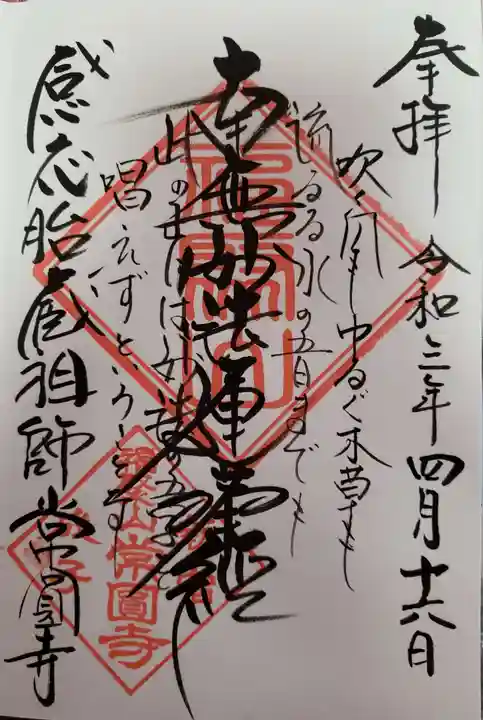 奉拝 令和三年四月十六日
吹く風もゆるぐ木苗すも
流るる水の音までも
南無妙法蓮華経
此の せは妙法の五字を
唱えずといふことなす
感応胎蔵祖師 常圓寺
山常圓寺